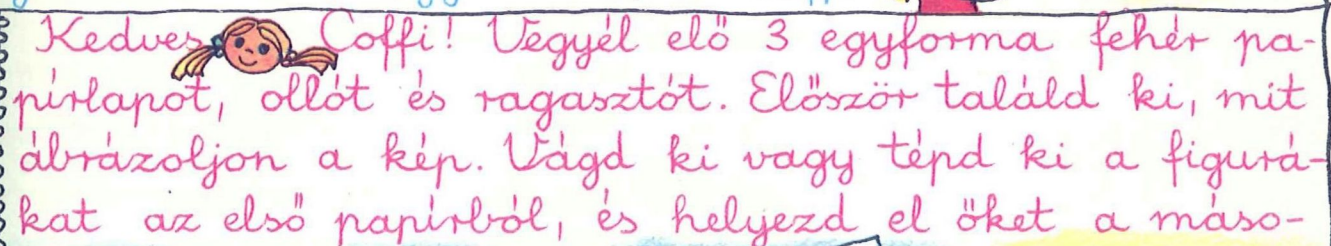 Kedves Coffi! Vegyél elő 3 egyforma fehér pa-
pírlapot, ollót és ragasztót. Először találd ki, mit
ábrázoljon a kép. Vágd ki vagy tépd ki a figurá-
kat az első papírból, és helyezd el őket a máso-